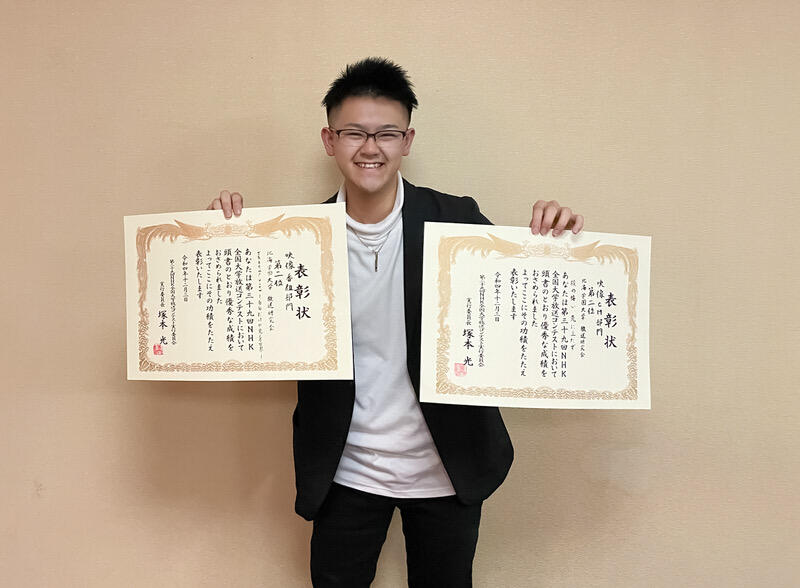 表彰状
映像番組部門
第二位
北海学園大学 放送研究会
あなたは第三十九回NHK
全国大学放送コンテストにおいて
頭書のとおり優秀な成績を
おさめられました
よってここにその功績をたたえ
表彰いたします
令和四年十二月三日
第三十九回NHK全国大学放送コンテスト実行委員会
実行委員長 塚本 光
表彰状
映像CM部門
第二位
北海学園大学 放送研究会
あなたは第三十九回NHK
全国大学放送コンテストにおいて
頭書のとおり優秀な成績を
おさめられました
よってここにその功績をたたえ
表彰いたします
令和四年十二月三日
第三十九回NHK全国大学放送コンテスト実行委員会
実行委員長 塚本 光